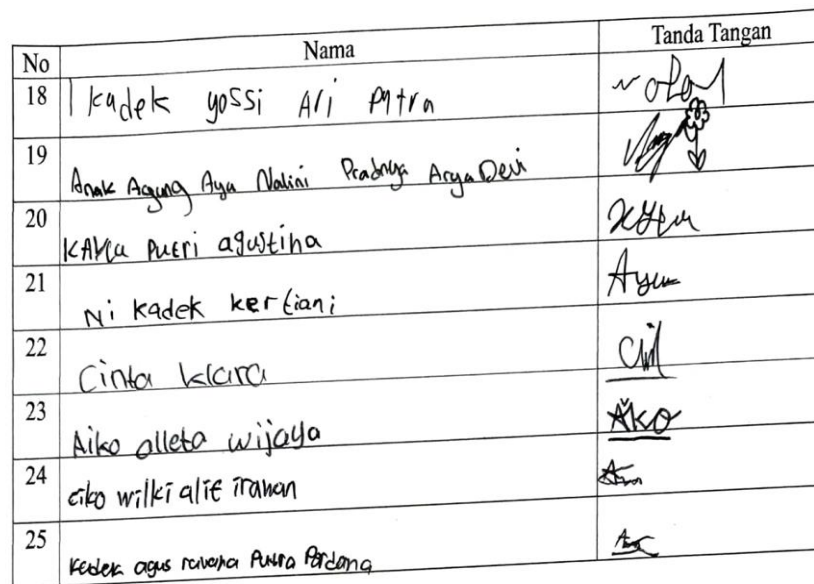 No Nama Tanda Tangan
18 I kadek yossi Ari putra
19 Anak Agung Ayu Nalini Pradnya Arya Devi
20 KAYLa Putri agustina
21 Ni kadek kertiani Ayu
22 Cinta klara
23 Aiko alleta wijaya Aiko
24 eiko wilki alif irawan
25 Kedek agus Putra Perdana